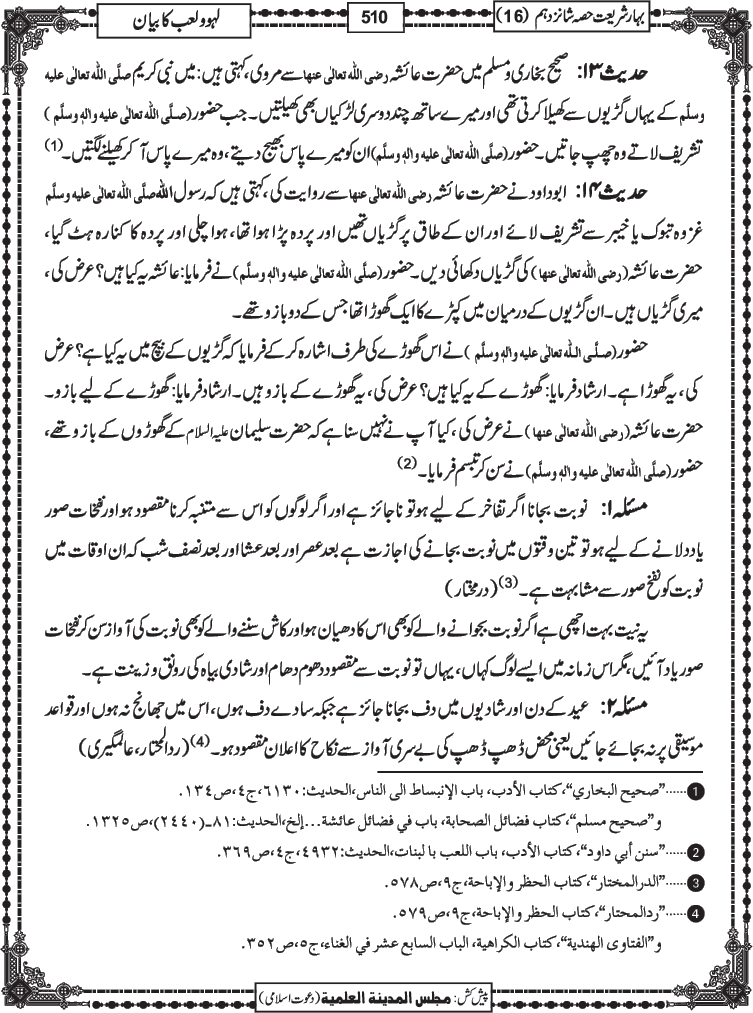 بہارِ شریعت حصہ شانزدہم (16)
510
لہو و لعب کا بیان
حدیث ۱۳: صحیح بخاری و مسلم میں حضرت عائشہ رضی اللہ تعالیٰ عنها سے مروی، کہتی ہیں: میں نبی کریم صلَّی اللہ تعالیٰ علیہ
وسلَّم کے یہاں گڑیوں سے کھیلا کرتی تھی اور میرے ساتھ چند دوسری لڑکیاں بھی کھیلتیں۔ جب حضور (صلَّی اللہ تعالیٰ علیہ واٰلہٖ وسلَّم)
تشریف لاتے وہ چھپ جاتیں۔ حضور (صلَّی اللہ تعالیٰ علیہ واٰلہٖ وسلَّم) ان کو میرے پاس بھیج دیتے، وہ میرے پاس آکر کھیلنے لگتیں۔ (1)
حدیث ۱۴: ابو داود نے حضرت عائشہ رضی اللہ تعالیٰ عنها سے روایت کی، کہتی ہیں کہ رسول اللہ صلَّی اللہ تعالیٰ علیہ وسلَّم
غزوہ تبوک یا خیبر سے تشریف لائے اور ان کے طاق پر گڑیاں تھیں اور پردہ پڑا ہوا تھا، ہوا چلی اور پردہ کا کنارہ ہٹ گیا،
حضرت عائشہ (رضی اللہ تعالیٰ عنها) کی گڑیاں دکھائی دیں۔ حضور (صلَّی اللہ تعالیٰ علیہ واٰلہٖ وسلَّم) نے فرمایا: عائشہ یہ کیا ہیں؟ عرض کی،
میری گڑیاں ہیں۔ ان گڑیوں کے درمیان میں کپڑے کا ایک گھوڑا تھا جس کے دو بازو تھے۔
حضور (صلَّی اللہ تعالیٰ علیہ واٰلہٖ وسلَّم) نے اس گھوڑے کی طرف اشارہ کرکے فرمایا کہ گڑیوں کے بیچ میں یہ کیا ہے؟ عرض
کی، یہ گھوڑا ہے۔ ارشاد فرمایا: گھوڑے کے یہ کیا ہیں؟ عرض کی، یہ گھوڑے کے بازو ہیں۔ ارشاد فرمایا: گھوڑے کے لیے بازو۔
حضرت عائشہ (رضی اللہ تعالیٰ عنها) نے عرض کی، کیا آپ نے نہیں سنا ہے کہ حضرت سلیمان علیہ السلام کے گھوڑوں کے بازو تھے،
حضور (صلَّی اللہ تعالیٰ علیہ واٰلہٖ وسلَّم) نے سن کر تبسم فرمایا۔ (2)
مسئلہ ۱: نوبت بجانا اگر تفاخر کے لیے ہو تو ناجائز ہے اور اگر لوگوں کو اس سے متنبہ کرنا مقصود ہو اور نفخات صور
یاد دلانے کے لیے ہو تو تین وقتوں میں نوبت بجانے کی اجازت ہے بعد عصر اور بعد عشا اور بعد نصف شب کہ ان اوقات میں
نوبت کو نفخ صور سے مشابہت ہے۔ (3) (درمختار)
یہ نیت بہت اچھی ہے اگر نوبت بجوانے والے کو بھی اس کا دھیان ہو اور کاش سننے والے کو بھی نوبت کی آواز سن کر نفخات
صور یاد آئیں، مگر اس زمانہ میں ایسے لوگ کہاں، یہاں تو نوبت سے مقصود دھوم دھام اور شادی بیاہ کی رونق و زینت ہے۔
مسئلہ ۲: عید کے دن اور شادیوں میں دف بجانا جائز ہے جبکہ سادے دف ہوں، اس میں جھانج نہ ہوں اور قواعد
موسیقی پر نہ بجائے جائیں یعنی محض ڈھپ ڈھپ کی بے سری آواز سے نکاح کا اعلان مقصود ہو۔ (4) (ردالمحتار، عالمگیری)
1 ...... ”صحیح البخاري“، کتاب الأدب، باب الإنبساط الی الناس، الحدیث: ٦١٣٠، ج٤، ص١٣٤.
و ”صحیح مسلم“، کتاب فضائل الصحابة، باب في فضائل عائشة...إلخ، الحدیث: ٨١ـ(٢٤٤٠)، ص١٣٢٥.
2 ...... ”سنن أبي داود“، کتاب الأدب، باب اللعب بالبنات، الحدیث: ٤٩٣٢، ج٤، ص٣٦٩.
3 ...... ”الدرالمختار“، کتاب الحظر والإباحة، ج٩، ص٥٧٨.
4 ...... ”ردالمحتار“، کتاب الحظر والإباحة، ج٩، ص٥٧٩.
و ”الفتاوی الهندیة“، کتاب الکراهیة، الباب السابع عشر في الغناء، ج٥، ص٣٥٢.
پیش کش: مجلس المدینة العلمیة (دعوت اسلامی)